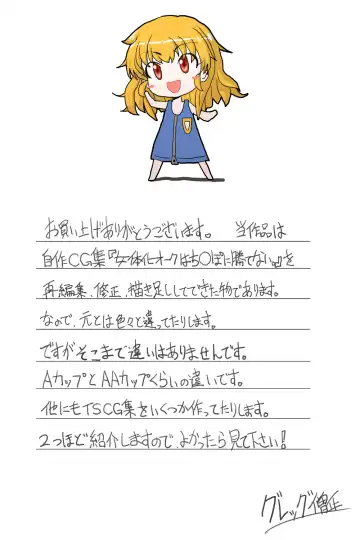 お買い上げありがとうございます。 当作品は
自作CG集『女体化オークはち○ぽに勝てない』を
再編集、修正、描き足ししてできた物であります。
なので、元とは色々と違ってたりします。
ですがそこまで違いはありませんです。
AカップとAAカップくらいの違いです。
他にもTSCG集をいくつか作ってたりします。
2つほど紹介しますので、よかったら見て下さい!
グレッグ僧正